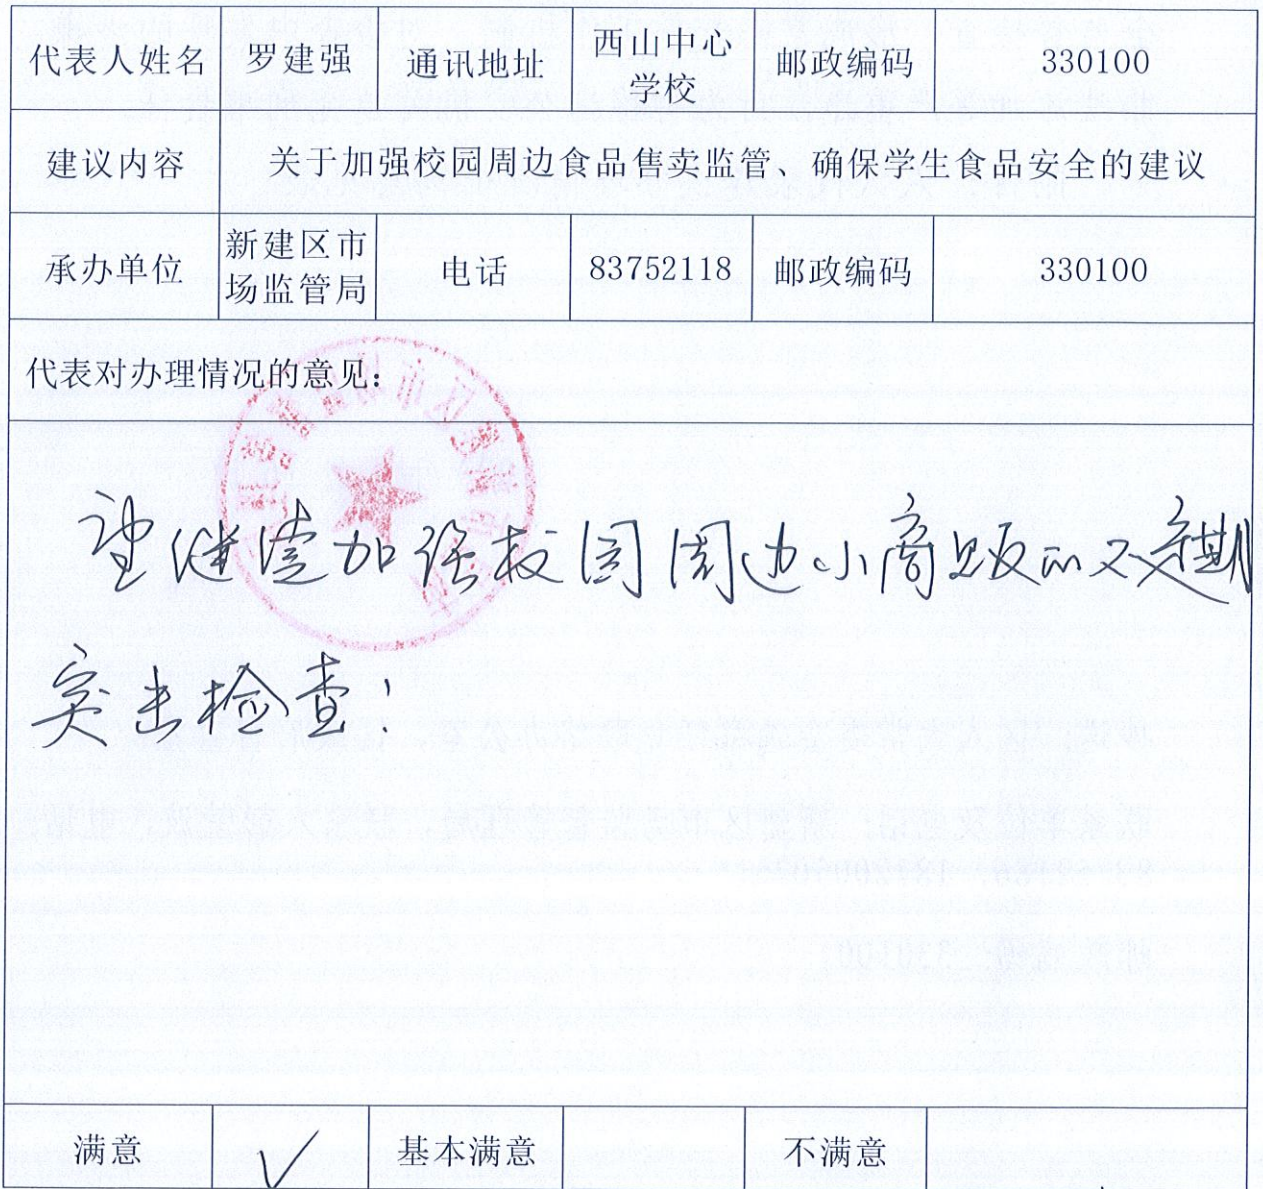 代表人姓名 罗建强 通讯地址 西山中心学校 邮政编码 330100
建议内容 关于加强校园周边食品售卖监管、确保学生食品安全的建议
承办单位 新建区市场监管局 电话 83752118 邮政编码 330100
代表对办理情况的意见：
望继续加强校园周边小商贩的不定期
突击检查！
满意 ✓ 基本满意 不满意